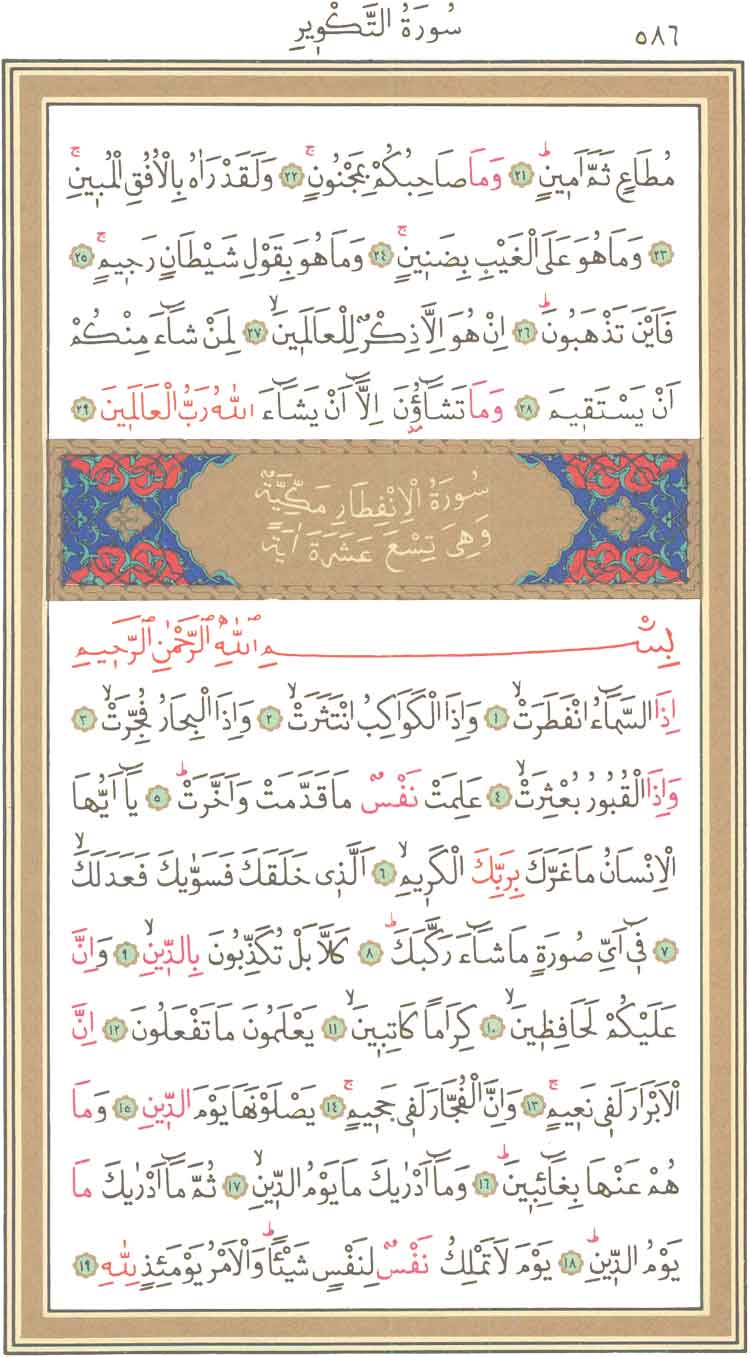 ٥٨٦ سُورَةُ التَّكْوِيرِ
مُطَاعٍ ثَمَّ اَمِينٍۜ ﴿٢١﴾ وَمَا صَاحِبُكُمْ بِمَجْنُونٍۚ ﴿٢٢﴾ وَلَقَدْ رَاٰهُ بِالْاُفُقِ الْمُبِينِۚ
﴿٢٣﴾ وَمَا هُوَ عَلَى الْغَيْبِ بِضَنِينٍۚ ﴿٢٤﴾ وَمَا هُوَ بِقَوْلِ شَيْطَانٍ رَجِيمٍۚ ﴿٢٥﴾
فَاَيْنَ تَذْهَبُونَۜ ﴿٢٦﴾ اِنْ هُوَ اِلَّا ذِكْرٌ لِلْعَالَمِينَۙ ﴿٢٧﴾ لِمَنْ شَٓاءَ مِنْكُمْ
اَنْ يَسْتَقِيمَ ﴿٢٨﴾ وَمَا تَشَٓاؤُ۫نَ اِلَّٓا اَنْ يَشَٓاءَ اللّٰهُ رَبُّ الْعَالَمِينَ ﴿٢٩﴾
سُورَةُ الْاِنْفِطَارِ مَكِّيَّةٌ
وَهِيَ تِسْعَ عَشَرَةَ اٰيَةً
بِسْمِ اللّٰهِ الرَّحْمٰنِ الرَّحِيمِ
اِذَا السَّمَٓاءُ انْفَطَرَتْۙ ﴿١﴾ وَاِذَا الْكَوَاكِبُ انْتَثَرَتْۙ ﴿٢﴾ وَاِذَا الْبِحَارُ فُجِّرَتْۙ ﴿٣﴾
وَاِذَا الْقُبُورُ بُعْثِرَتْۙ ﴿٤﴾ عَلِمَتْ نَفْسٌ مَا قَدَّمَتْ وَاَخَّرَتْۜ ﴿٥﴾ يَٓا اَيُّهَا
الْاِنْسَانُ مَا غَرَّكَ بِرَبِّكَ الْكَرِيمِۙ ﴿٦﴾ اَلَّذِي خَلَقَكَ فَسَوّٰيكَ فَعَدَلَكَۙ
﴿٧﴾ فِٓي اَيِّ صُورَةٍ مَا شَٓاءَ رَكَّبَكَۜ ﴿٨﴾ كَلَّا بَلْ تُكَذِّبُونَ بِالدِّينِۙ ﴿٩﴾ وَاِنَّ
عَلَيْكُمْ لَحَافِظِينَۙ ﴿١٠﴾ كِرَاماً كَاتِبِينَۙ ﴿١١﴾ يَعْلَمُونَ مَا تَفْعَلُونَ ﴿١٢﴾ اِنَّ
الْاَبْرَارَ لَفِي نَعِيمٍۚ ﴿١٣﴾ وَاِنَّ الْفُجَّارَ لَفِي جَحِيمٍۚ ﴿١٤﴾ يَصْلَوْنَهَا يَوْمَ الدِّينِ ﴿١٥﴾ وَمَا
هُمْ عَنْهَا بِغَٓائِبِينَۜ ﴿١٦﴾ وَمَٓا اَدْرٰيكَ مَا يَوْمُ الدِّينِۙ ﴿١٧﴾ ثُمَّ مَٓا اَدْرٰيكَ مَا
يَوْمُ الدِّينِۜ ﴿١٨﴾ يَوْمَ لَا تَمْلِكُ نَفْسٌ لِنَفْسٍ شَيْـٔاًۜ وَالْاَمْرُ يَوْمَئِذٍ لِلّٰهِ ﴿١٩﴾